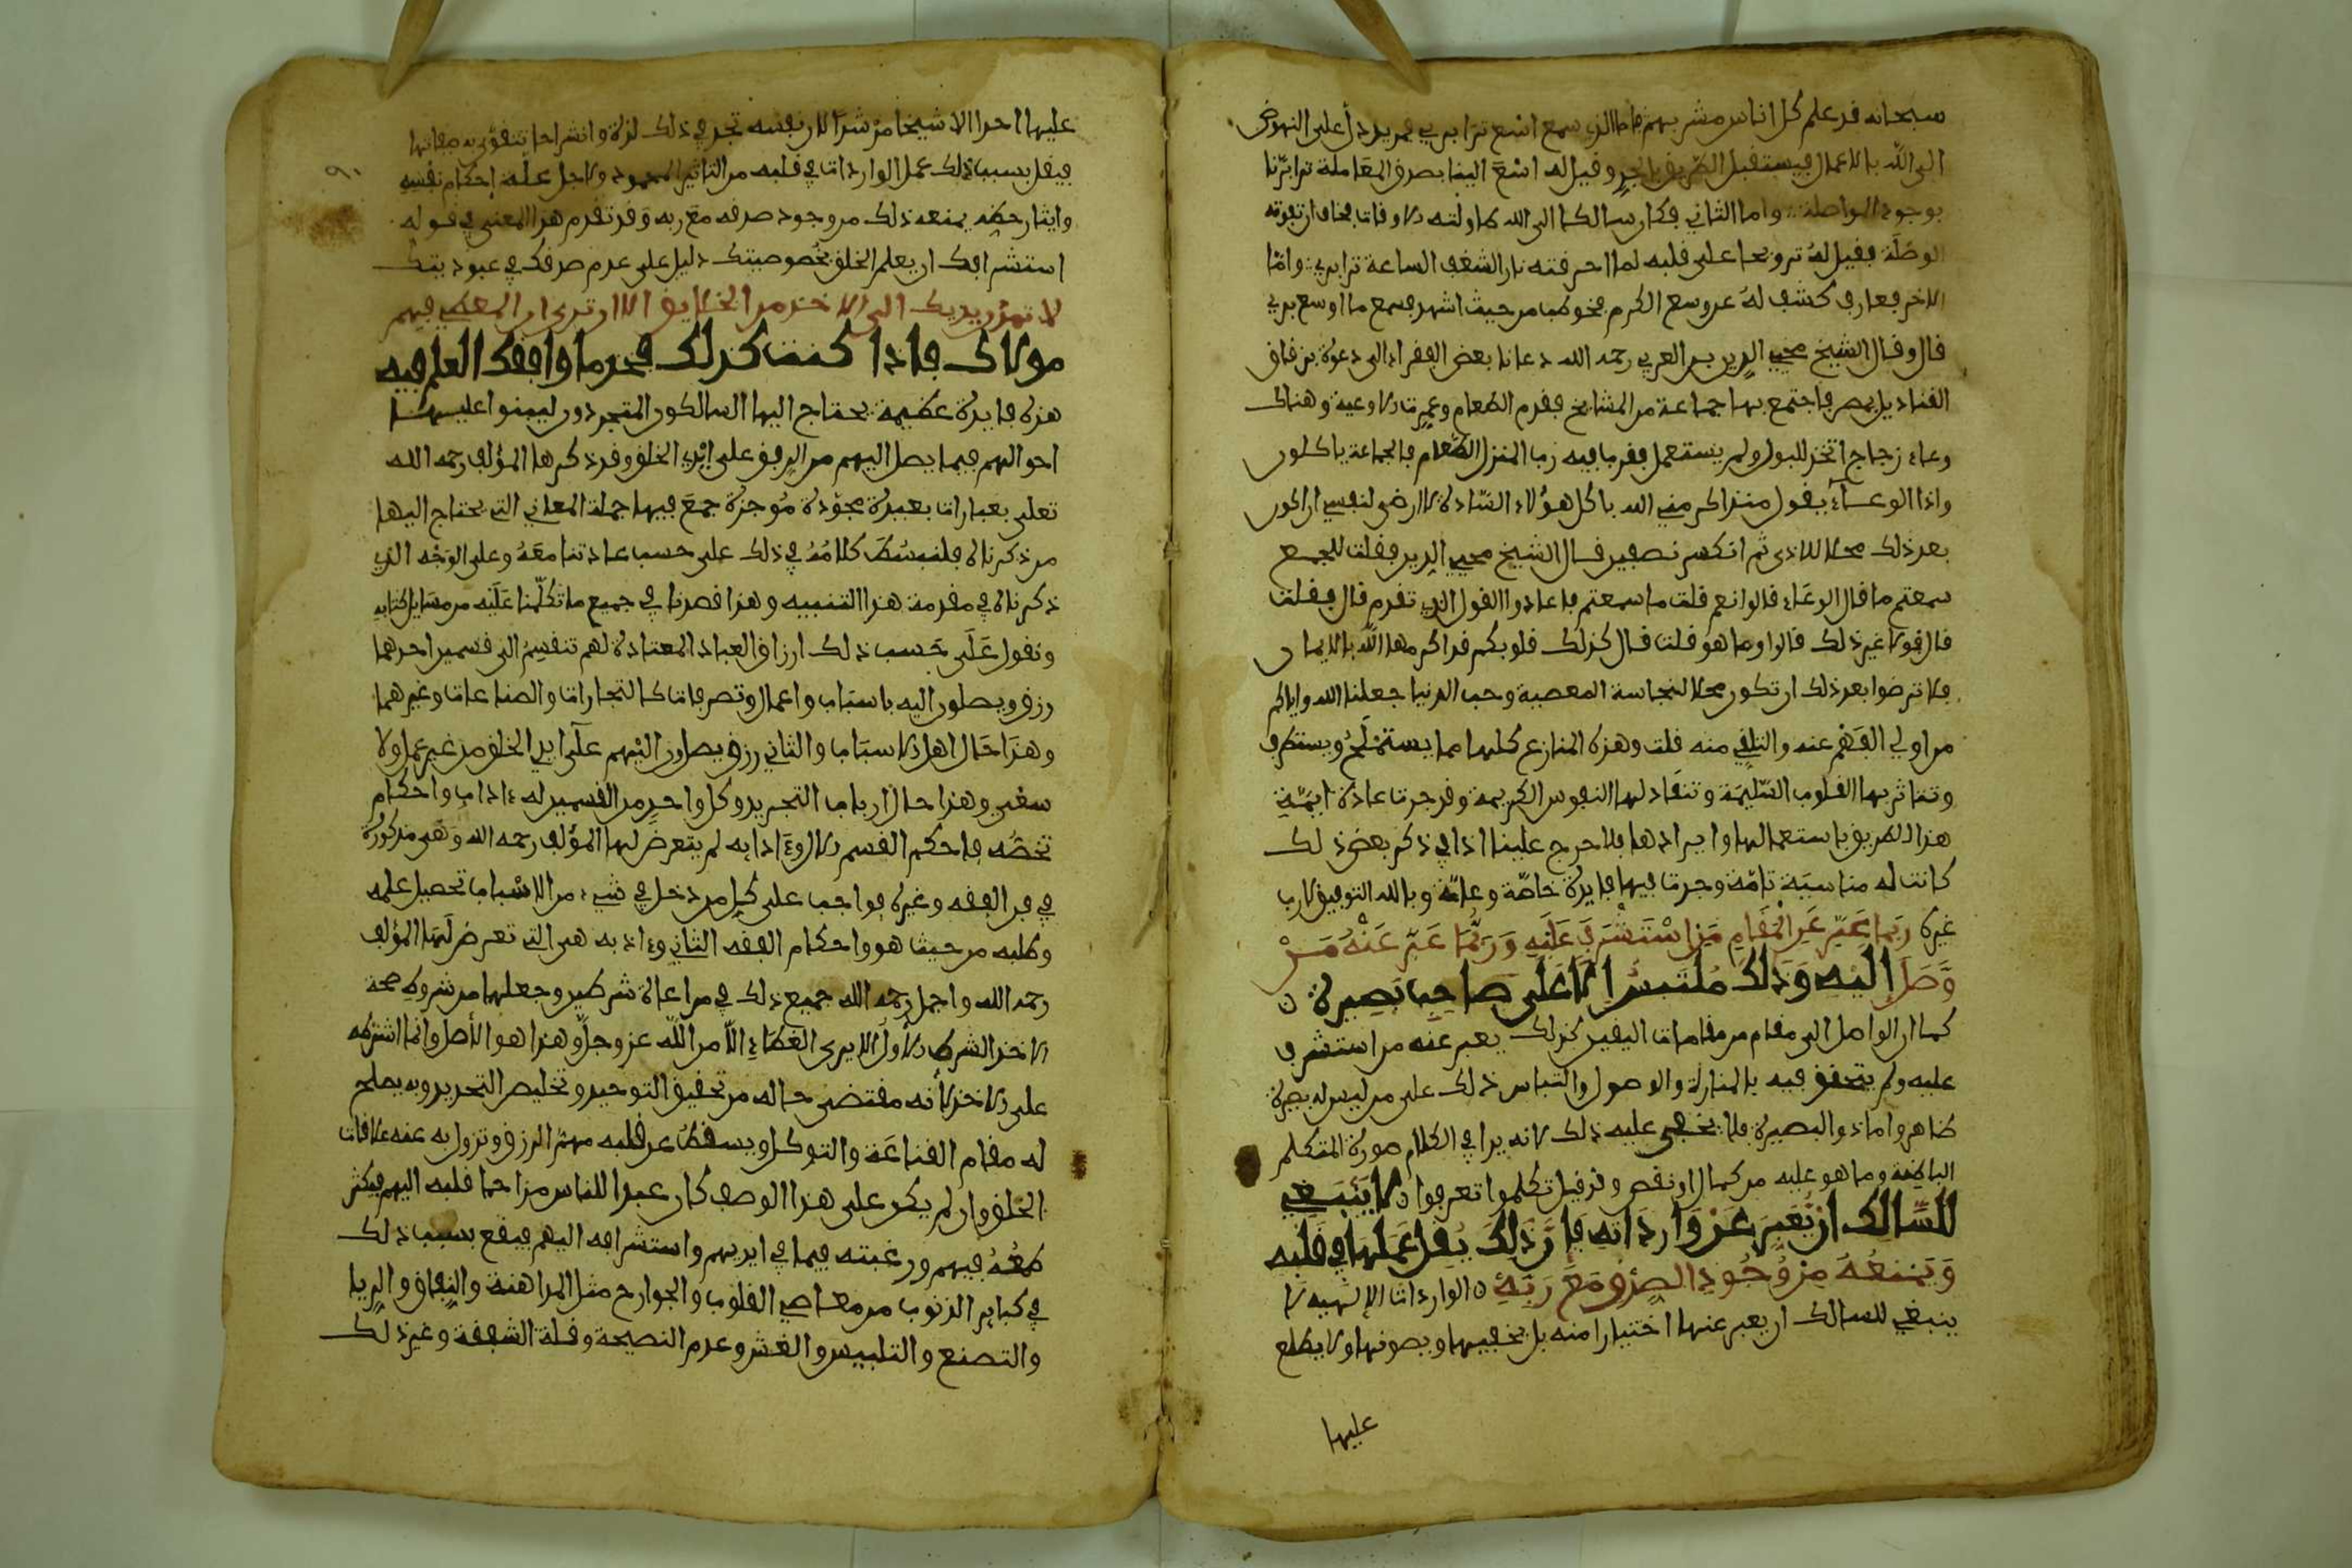 سبحانه قد علم كل اناس مشربهم فاما الذي سمع اسْع ترَ بري فمريد دل على النهوض
الى الله بالاعمال فيستقبل الطريق بالجد وقيل له اسْعَ الينا بصدق المعَاملة ترا برّنا
بوجود المواصلة واما الثاني فكان سالكا الى الله طاولته الاوقات فخاف ان تفوته
الوصْلَة فقيل لهُ ترويحا على قلبه لما احرقته نار الشغف الساعة ترا بري وامّا
الاخر فعارف كشف لهُ عن وسع الكرم فخوطب من حيث اشهد فسمع ما اوسع بري
قال وقال الشيخ محيي الدين بن العربي رحمه الله دعانا بعض الفقراء الى دعوة بزقاق
القناديل بمصر فاجتمع بها جماعة من المشايخ فقدم الطعام وعمرت الاوعية وهناك
وعاء زجاج اتخذ للبول ولم يستعمل فغرف فيه رب المنزل الطعام فالجماعة ياكلون
واذا الوعـاء يقول منذ اكرمني الله باكل هؤلاء السّادة لا ارضى لنفسي ان اكون
بعد ذلك محلا للاذى ثم انكسر نصفين قـال الشيخ محيي الدين فقلت للجمـع
سمعتم ما قال الوعَاء قالوا نعم قلت ما سمعتم فاعادوا القول الذي تقدم قال فقلت
قال قولا غير ذلك قالوا وما هو قلت قـال كذلك قلوبكم قد اكرمها الله بالايمان
فلا ترضوا بعد ذلك ان تكون محلا لنجاسة المعصية وحب الدنيا جعلنا الله واياكم
من اولي الفَهْم عنه والتلقي منه قلت وهذه المنازع كلها مما يستمْلَحُ ويستظرف
وتتاثر بها القلوب السّليمَة وتنقاد لها النفوس الكريمة وقد جرت عادة ايمَّة
هذا الطريق باستعمالها وايرادها فلا حرج علينا اذا في ذكر بعض ذلك
كانت له مناسبَة تامّة وجرت فيها فايدة خاصّة وعامّة وبالله التوفيق لا رب
غيره رُبَمَا عَبّرَ عَنِ الْمَقَامِ مَنِ اسْتَشْرَفَ عَلَيْهِ وَرُبَّمَا عَبّرَ عَنْهُ مَـنْ
وَّصَلَ اِلَيْهِ وَذَلكَ مُلْتَبسٌ اِلاَّ عَلَى صَاحِبِ بَصِيرةٍ ن
كما ان الواصل الى مقام من مقامات اليقين كذلك يعبر عنه من استشرف
عليه ولم يتحقق فيه بالمنازلة والوصول والتباس ذلك على من ليس له بصيرة
ظاهر واما ذو البصيرة فلا يخفى عليه ذلك لانه يرا في الكلام صورة المتكلم
الباطنة وما هو عليه من كمال او نقص وقد قيل تكلموا تعرفوا ن لا يَنْبَغِي
للسَّالك انْ يُّعَبِّرَ عَنْ وَارِدَاتِهِ فَاِنَّ ذَلكَ يُقِلُّ عَمَلَهَا فِي قَلْبِه
وَيَمْنَعُهُ مِنْ وُّجُودِ الصِّدْقِ مَعَ رَبِّهِ ن الواردات الإلهيه لا
ينبغي للسالك ان يعبر عنها اختيارا منه بل يخفيها ويصونها ولا يطلع
عليها
عليها احدا الا شيخا مرْشدا لان نفسه تجد في ذلك لذة وانشراحا تتقوَّى به صفاتها
فيقل بسبب ذلك عمل الواردات في قلبه من التاثير المحمود ولاجل غلبة احكام نفْسه
وايثار حظه يمنعه ذلك من وجود صدقه مَعَ ربه وَقد تقدم هذا المعنى في قوله
استشرافك ان يعلم الخلق بخُصوصيتك دليل على عدم صدقك في عبوديتك
لا تمدّن يديك الى الاخذ من الخلايق الا ان ترى ان المعطي فيهم
مولاك فاذا كنت كذلك فخذ ما وافقك العلم فيه
هذه فايدة عظيمة يحتاج اليها السالكون المتجردون ليبنوا عليـهـا
احوالهم فيما يصل اليهم من الرفق على ايْدي الخلق وقد ذكرها المؤلف رحمه اللـه
تعلى بعبارات بعيدة مجوّدة مُوجزة جمعَ فيها جملة المعاني التي يحتاج اليها
من ذكرناه فلنبسُط كلامُهُ في ذلك على حسب عادتنا معَهُ وعلى الوَجْه الذي
ذكرناه في مقدمة هذا التنبيه وهذا قصدنا في جميع ما تكلّمنا عَلَيْه من مسَايل كتابه
ونقول عَلَى حَسب ذلك ارزاق العباد المعتادة لهم تنقسِمُ الى قسمين احدهما
رزق ويصلون اليه باسبَاب واعمال وتصرفات كالتجارات والصناعات وغيرهما
وهَذا حَال اهل الاسبَاب والثاني رزق يصل اليْهم علَى ايدي الخلق من غير عمل ولا
سعْي وهذا حـال ارباب التجريد وكل واحدٍ من القسمين له ءاداب واحكام
تخصّه فاحكم القسم الاول وءَادابه لم يتعرضْ لها المؤلف رحمه الله وَهي مذكورة
في فن الفقه وغيره فواجب على كل من دخل في شيء من الاسْباب تحصيل علمه
وطلبه من حيث هو واحكام القسم الثاني وءادابه هي التي تعرض لَهَا المؤلف
رحمه الله واجمل رحمَه الله جميع ذلك في مراعاة شرطين وجعلهما من شروط صحة
الاخذ الشرط الاول ألا يرى العَطَاء الاّ من اللّه عز وجلّ وهذا هو الأصل وانما اشترطه
على الاخذ لأنه مقتضى حـاله من تحقيق التوحيد وتخليص التجريد وبه يصلح
له مقام القناعَة والتوكل ويسقطُ عن قلبه مهمّ الرزق وتزول به عنه علاقات
الخلق وان لم يكن على هذا الوصف كان عبدا للناس مزاحما قلبه اليهم فيكثر
طمَعُهُ فيهم ورغبته فيما في ايديهم واستشرافه اليهم فيقع بسبب ذلك
في كباير الذنوب من معـاصي القلوب والجوارح مثل المداهنة والنِفاق والرِيا
والتصنع والتلبيس والغش وعدم النصيحة وقلة الشفقة وغير ذلك